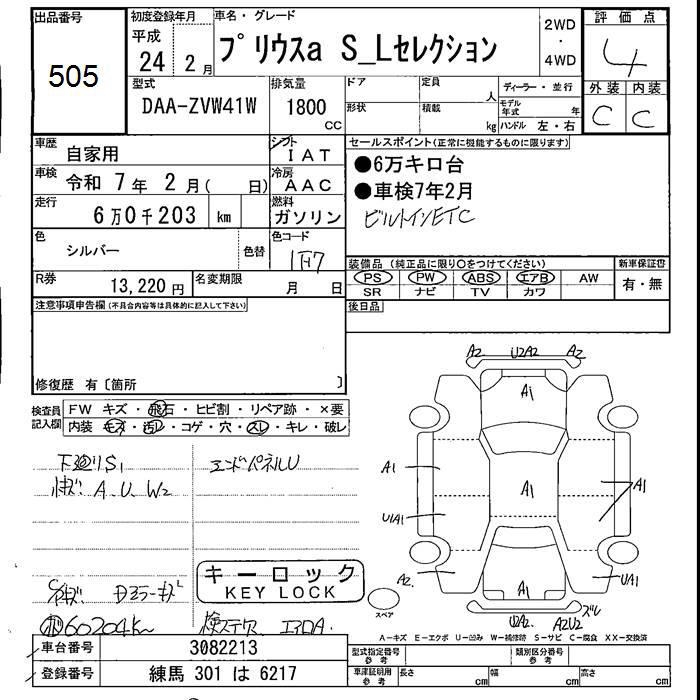 出品番号
505
初度登録年月
平成
24 2月
車名・グレード
プリウスa S_Lセレクション
2WD
・
4WD
評価点
4
型式
DAA-ZVW41W
排気量
1800
CC
ドア
形状
定員
人
積載
kg
ディーラー・並行
モデル年式 年
ハンドル 左・右
外装 内装
C C
車歴
自家用
シフト
IAT
車検
令和 7年 2月( 日)
冷房
AAC
走行
6万0千203 km
燃料
ガソリン
色
シルバー
色替
色コード
1F7
R券
13,220円
名変期限
月 日
セールスポイント(正常に機能するものに限ります)
●6万キロ台
●車検7年2月
ビルトインETC
装備品 (純正品に限り○をつけてください)
PS PW ABS エアB AW
SR ナビ TV カワ
新車保証書
有・無
後日品
注意事項申告欄(不具合内容等は具体的に記入して下さい)
修復歴 有〔箇所 〕
検査員記入欄
FW キズ・飛石・ヒビ割・リペア跡・×要
内装 キズ・汚レ・コゲ・穴・スレ・キレ・破レ
下廻りS1
エンドパネルU
A、U、W2
キーロック
KEY LOCK
60204K
A2 U2A2 A2
A1
A1
U1A1
A1
A1
A2
A1
UA1
U2A2 A2U2 ズレ
スペア
A-キズ E-エクボ U-凹み W-補修跡 S-サビ C-腐食 XX-交換済
車台番号
3082213
登録番号
練馬 301 は 6217
型式指定番号
参考
類別区分番号
参考
車庫証明用
参考
長さ cm 幅 cm 高さ cm